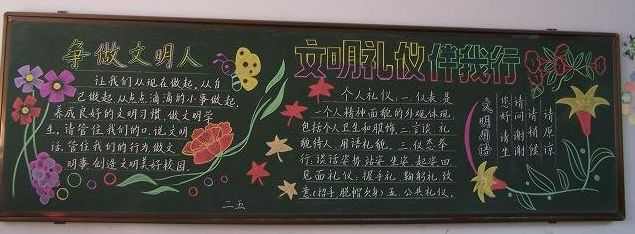 争做文明人
让我们从现在做起,从自
己做起,从点点滴滴的小事做起,
养成良好的文明习惯,做文明学
生,请管住我们的口,说文明
话,管住我们的行为,做文
明事,创造文明美好校园.
二五
文明礼仪伴我行
个人礼仪:一.仪表是
一个人精神面貌的外观体现,
包括个人卫生和服饰,二.言谈.礼
貌待人,用语礼貌.三.仪态举
行:谈话姿势.站姿.坐姿.起姿.四.
见面礼仪:握手礼.鞠躬礼.致
意(招手.脱帽.欠身)五.公共礼仪.
文明用语
您好 请坐
请问 谢谢
请稍候
请原谅